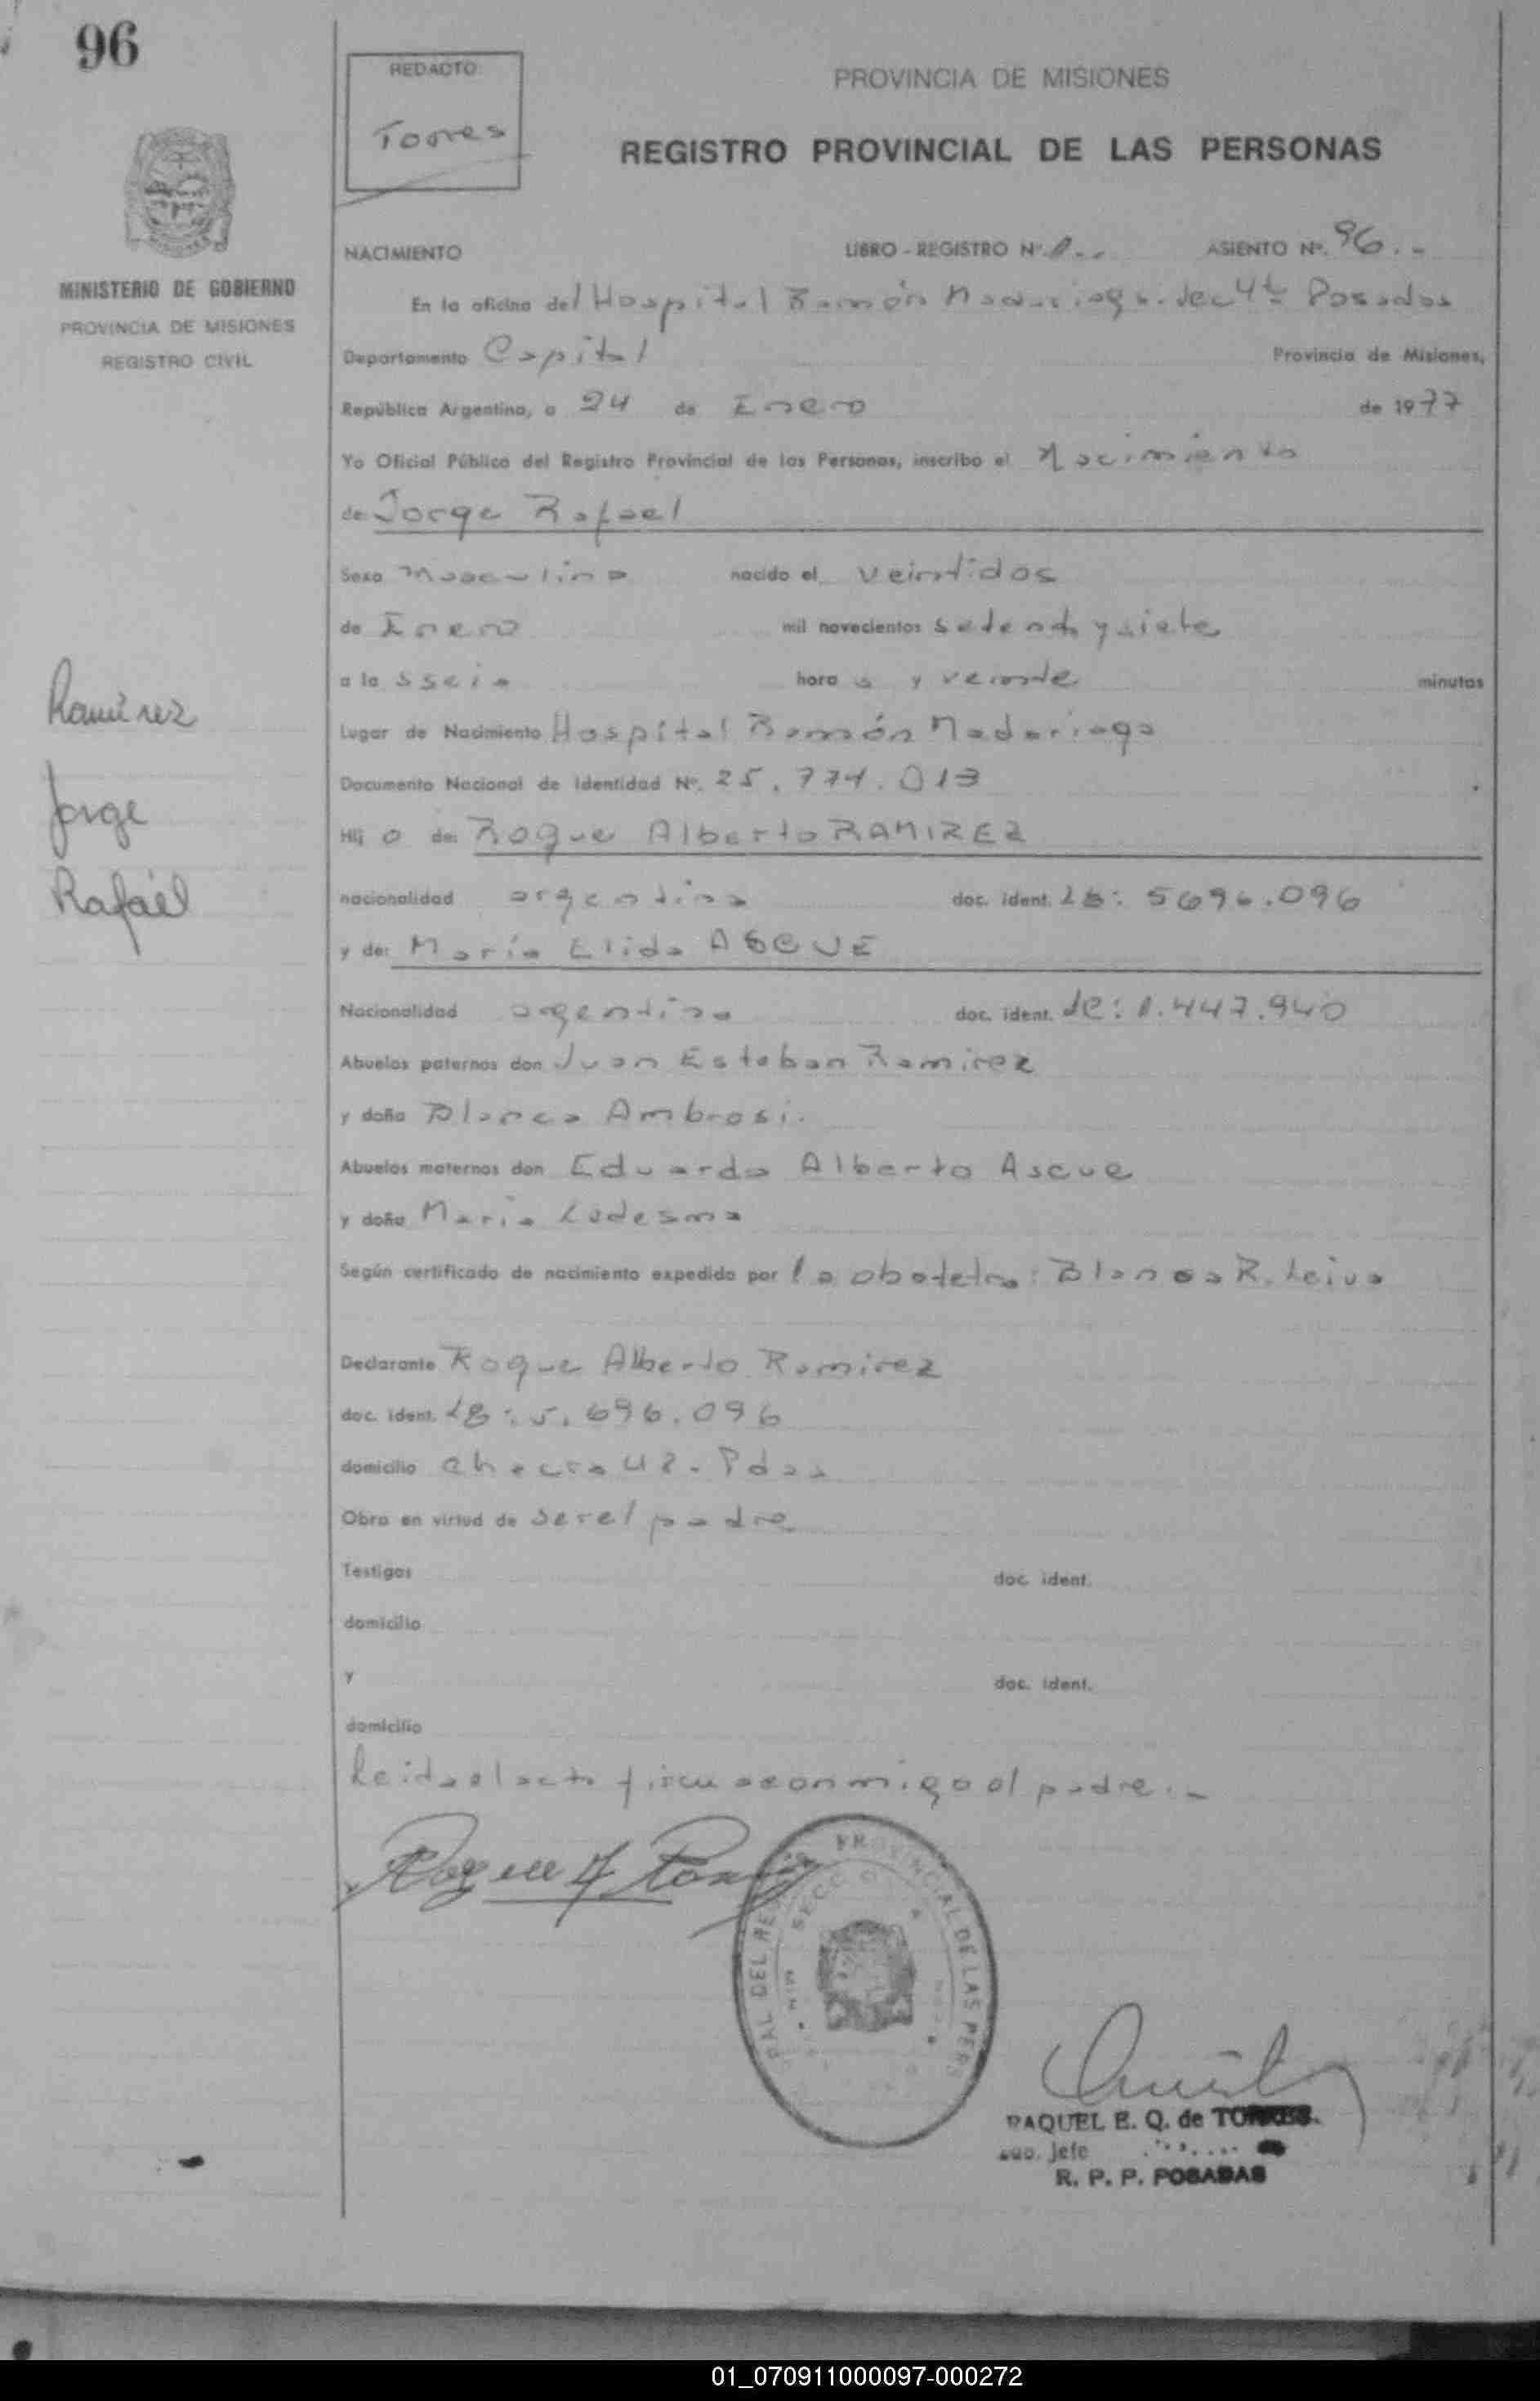 96
REDACTO
Torres
PROVINCIA DE MISIONES
REGISTRO PROVINCIAL DE LAS PERSONAS
MINISTERIO DE GOBIERNO
PROVINCIA DE MISIONES
REGISTRO CIVIL
NACIMIENTO LIBRO - REGISTRO Nº. 1.. ASIENTO Nº. 96.-
En la oficina del Hospital Ramón Madariaga. Sec 4ta Posadas
Departamento Capital Provincia de Misiones,
República Argentina, a 24 de Enero de 1977
Yo Oficial Público del Registro Provincial de las Personas, inscribo el Nacimiento
de: Jorge Rafael
Sexo Masculino nacido el veintidos
de Enero mil novecientos setenta y siete
a la s seis hora s y veinte minutos
Lugar de Nacimiento Hospital Ramón Madariaga
Documento Nacional de Identidad Nº. 25.774.013
Hij o de: Roque Alberto RAMIREZ
nacionalidad argentina doc. ident. LE: 5696.096
y de: María Elida ASCUE
Nacionalidad argentina doc. ident. LC: 1.447.940
Abuelos paternos don Juan Esteban Ramirez
y doña Blanca Ambrosi.
Abuelos maternos don Eduardo Alberto Ascue
y doña Maria Ledesma
Según certificado de nacimiento expedido por la obstetra: Blanca R. Leiva
Declarante Roque Alberto Ramirez
doc. ident. LE: 5.696.096
domicilio chacra 42 - Pdas
Obra en virtud de ser el padre
Testigos doc. ident.
domicilio
y doc. ident.
domicilio
Leida el acta firma conmigo el padre.-
Ramírez
Jorge
Rafael
Roque A Ramirez
PROVINCIAL DE LAS PERS
RAQUEL E. Q. de TORRES.
Jefe
R. P. P. POSADAS
01_070911000097-000272